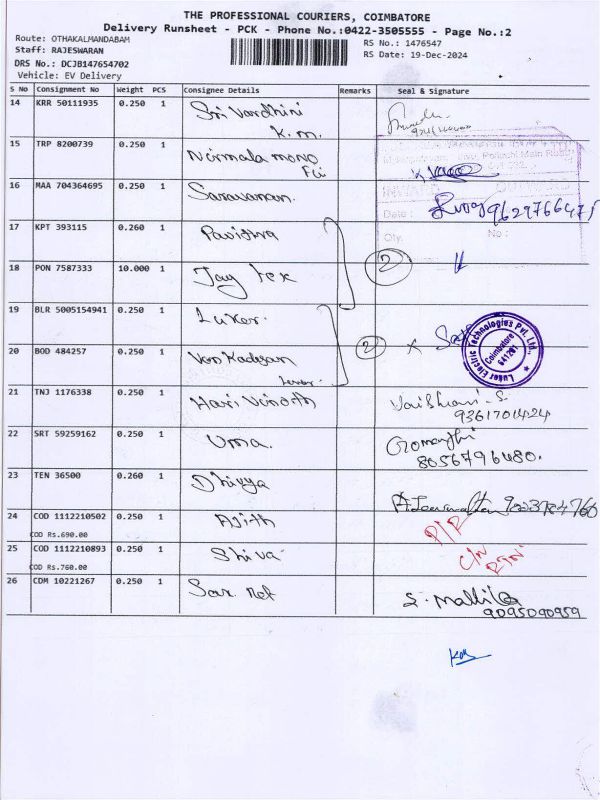 THE PROFESSIONAL COURIERS, COIMBATORE
Delivery Runsheet - PCK - Phone No.:0422-3505555 - Page No.:2
Route: OTHAKALMANDABAM
RS No.: 1476547
Staff: RAJESWARAN
RS Date: 19-Dec-2024
DRS No.: DCJB147654702
Vehicle: EV Delivery
S No Consignment No Weight PCS Consignee Details Remarks Seal & Signature
14 KRR 50111935 0.250 1 Sri Vardhini
K.m.
15 TRP 8200739 0.250 1 Nirmala mono
16 MAA 704364695 0.250 1 Saravanan.
9629766475
Date :
Qty. No :
17 KPT 393115 0.260 1 Pavithra
2
18 PON 7587333 10.000 1 Jay tex
19 BLR 5005154941 0.250 1 Luker.
Luker Electric Technologies Pvt. Ltd.,
Coimbatore
641201
20 BOD 484257 0.250 1 Venkadesan
2
21 TNJ 1176338 0.250 1 Hari Vinoth Vaishnavi-S
9361701424
22 SRT 59259162 0.250 1 Uma. Gomathi
8056796480.
23 TEN 36500 0.260 1 Dhivya
24 COD 1112210502 0.250 1 Ajith
COD Rs.690.00
25 COD 1112210893 0.250 1 Shiva
COD Rs.760.00
26 CDM 10221267 0.250 1 Sar. Net S. Malliga
9095090959